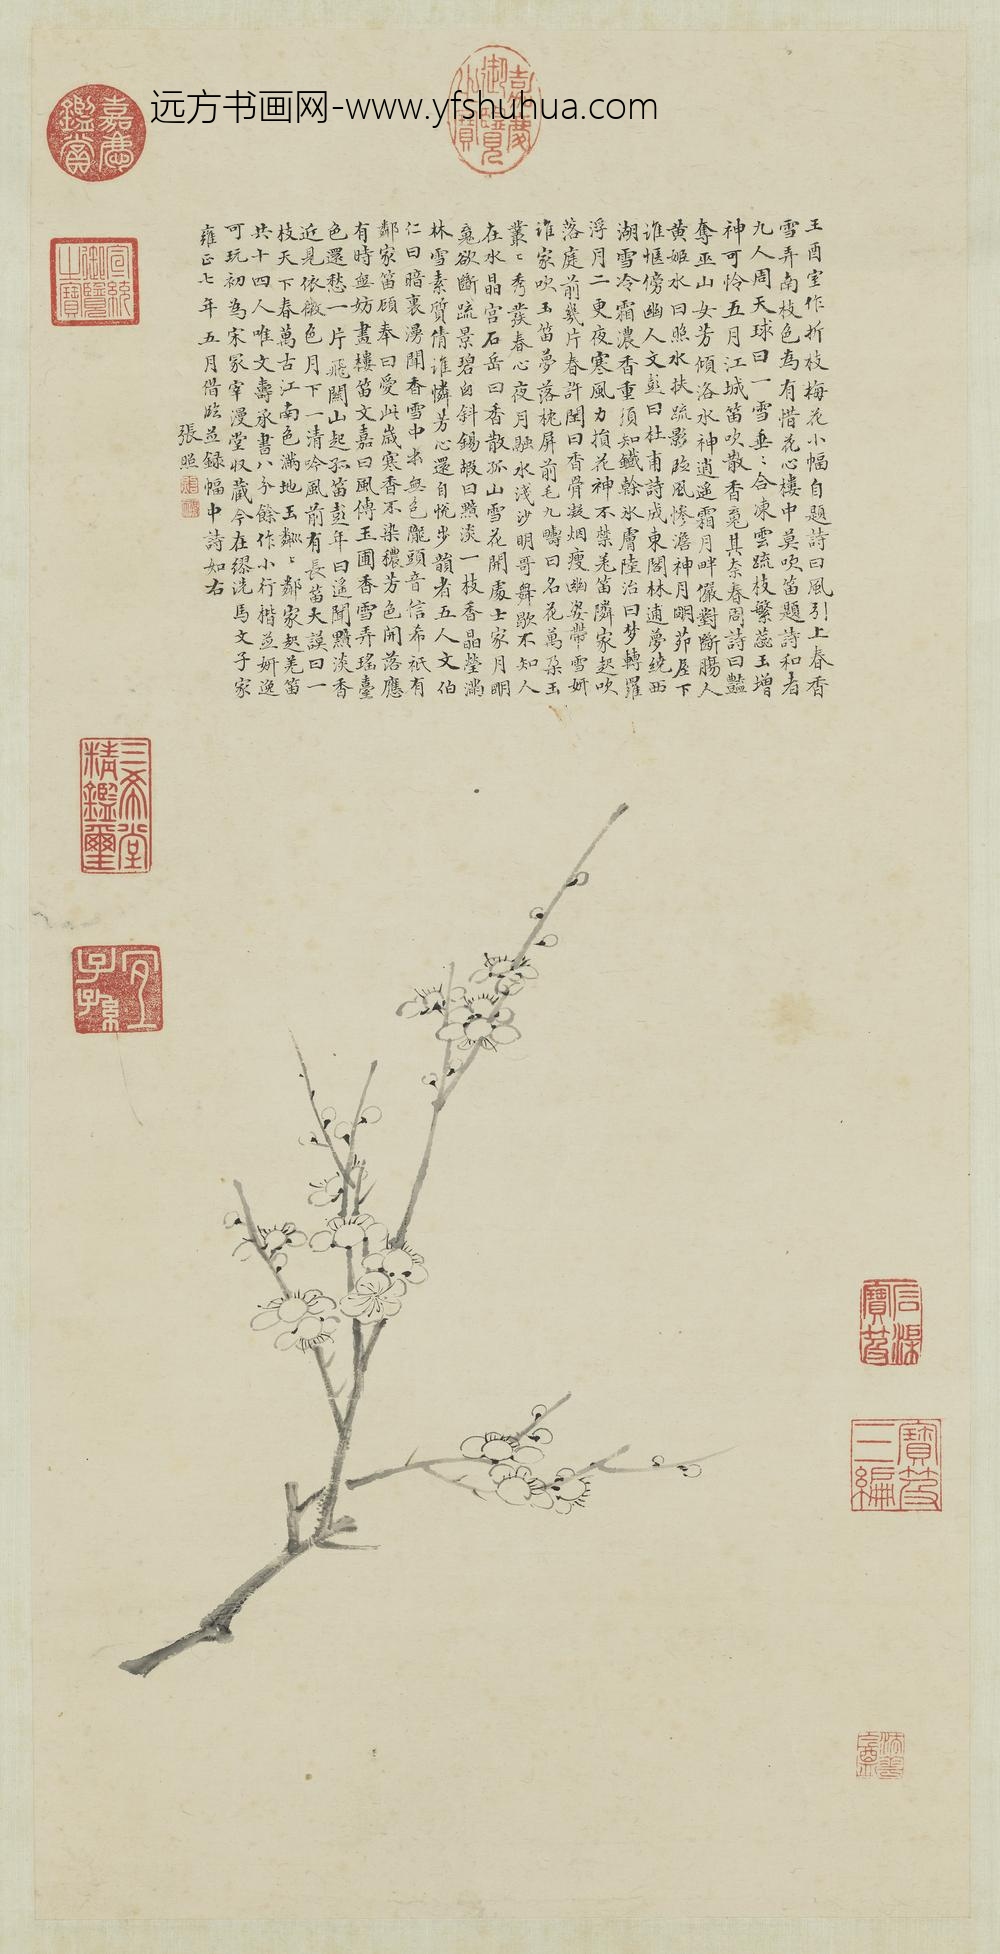 远方书画网-www.yfshuhua.com
嘉慶御覽之寶
嘉慶鑑賞
宣統御覽之寶
王酉室作折枝梅花小幅自題詩曰風引上春香
雪弄南枝色為有惜花心樓中莫吹笛題詩和者
九人周天球曰一雪垂〻合凍雲疏枝繁蕊玉增
神可怜五月江城笛吹散香魂其奈春周詩曰豔
奪巫山女芳傾洛水神逍遙霜月畔儼對斷腸人
黄姬水曰照水扶疏影臨風惨澹神月明茆屋下
誰惬傍幽人文彭曰杜甫詩成東閣林逋夢繞西
湖雪冷霜濃香重須知鐵榦冰膚陸治曰梦轉羅
浮月二更夜寒風力損花神不禁羌笛隣家起吹
落庭前幾片春許閏曰香骨凝烟瘦幽姿帶雪妍
誰家吹玉笛夢落枕屏前毛九疇曰名花萬朶玉
叢〻秀發春心夜月融水淺沙明哥舞歇不知人
在水晶宫石岳曰香散孤山雪花開處士家月明
魂欲斷疏景碧窗斜錫嘏曰點淡一枝香晶瑩滿
林雪素質倩誰憐芳心還自悅步韻者五人文伯
仁曰暗裏湧聞香雪中求無色隴頭音信希祇有
鄰家笛顧奉曰愛此歲寒香不染穠芳色開落應
有時無妨畫樓笛文嘉曰風傳玉圃香雪弄瑤臺
色還愁一片飛關山起孤笛彭年曰遥聞點淡香
近見依微色月下一清吟風前有長笛大謨曰一
枝天下春萬古江南色滿地玉粼〻鄰家起羌笛
共十四人唯文壽承書八分餘作小行楷並妍逸
可玩初為宋冢宰漫堂収藏今在繆洗馬文子家
雍正七年五月借臨並録幅中詩如右
張照
三希堂精鑑璽
宜子孫
石渠寶笈
寶笈三編